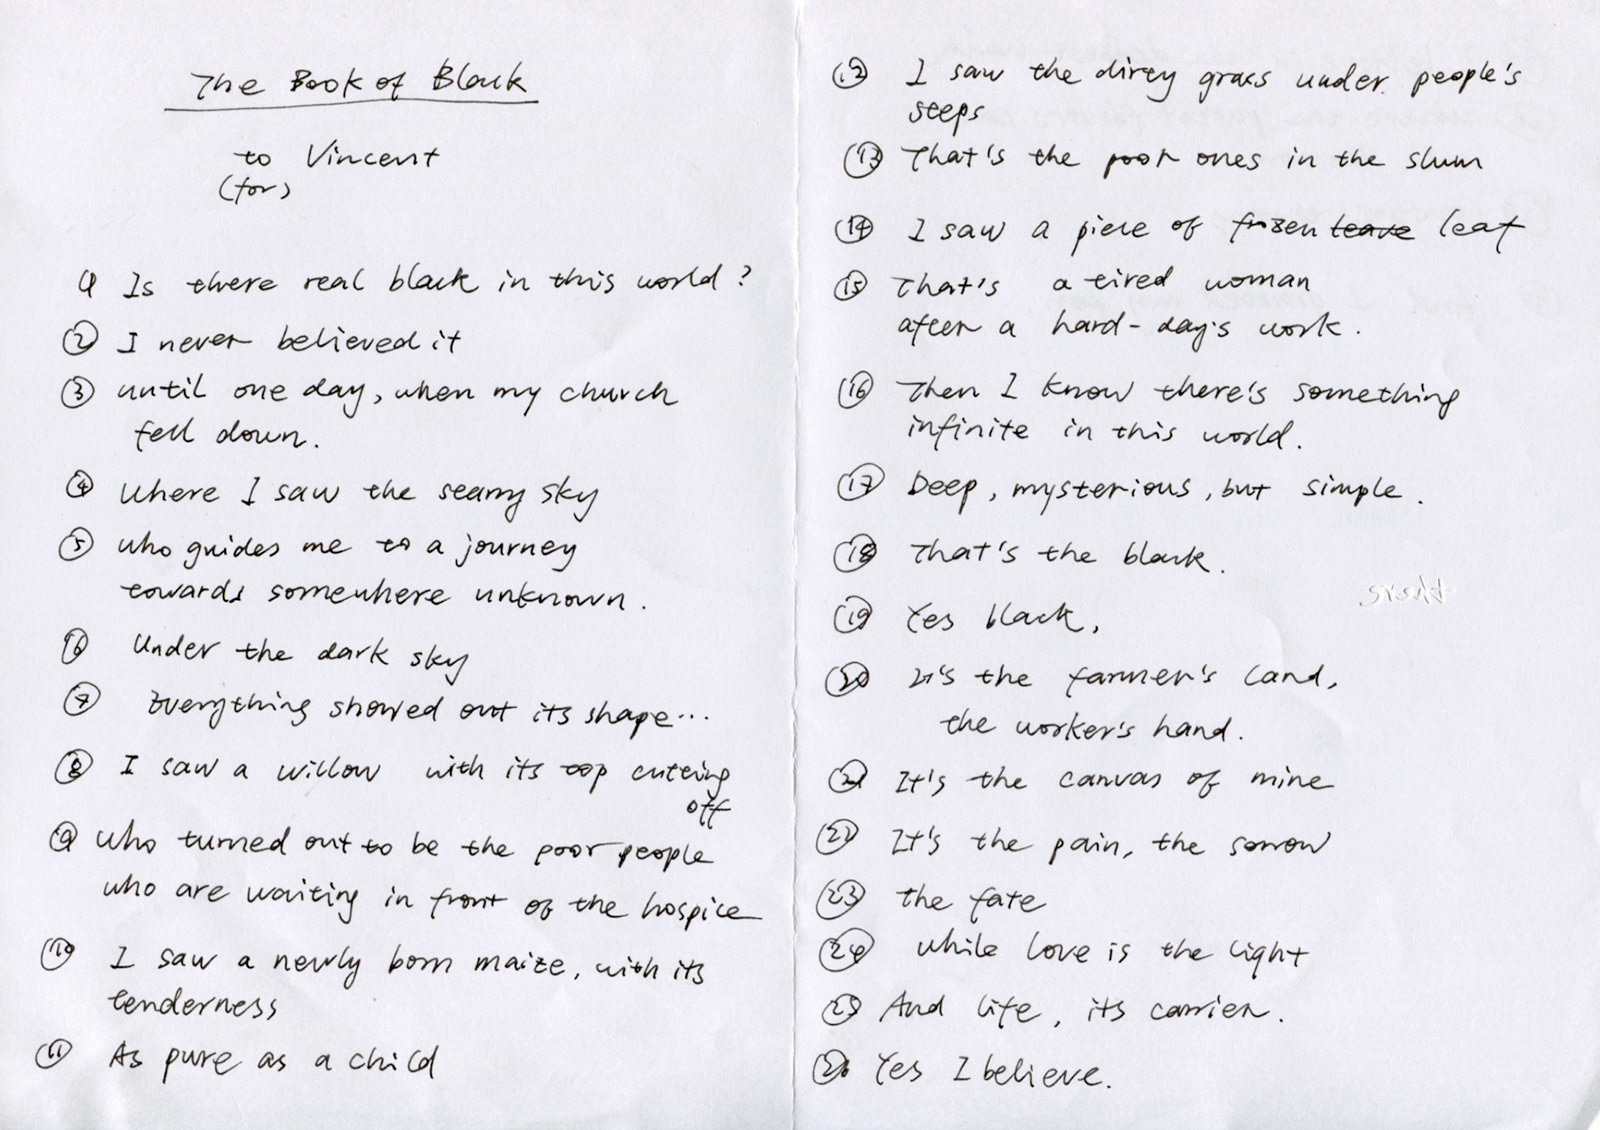 The Book of Black
to Vincent
(for)
① Is there real black in this world?
② I never believed it
③ until one day, when my church
fell down.
④ Where I saw the starry sky
⑤ who guides me to a journey
towards somewhere unknown.
⑥ Under the dark sky
⑦ Everything showed out its shape...
⑧ I saw a willow with its top cutting
off
⑨ who turned out to be the poor people
who are waiting in front of the hospice
⑩ I saw a newly born maize, with its
tenderness
⑪ As pure as a child
⑫ I saw the dirty grass under people's
steps
⑬ That's the poor ones in the slum
⑭ I saw a piece of frozen leave leaf
⑮ That's a tired woman
after a hard-day's work.
⑯ Then I know there's something
infinite in this world.
⑰ Deep, mysterious, but simple.
⑱ That's the black.
⑲ Yes black,
⑳ It's the farmer's land,
the worker's hand.
㉑ It's the canvas of mine
㉒ It's the pain, the sorrow
㉓ the fate
㉔ while love is the light
㉕ And life, its carrier.
㉖ Yes I believe.